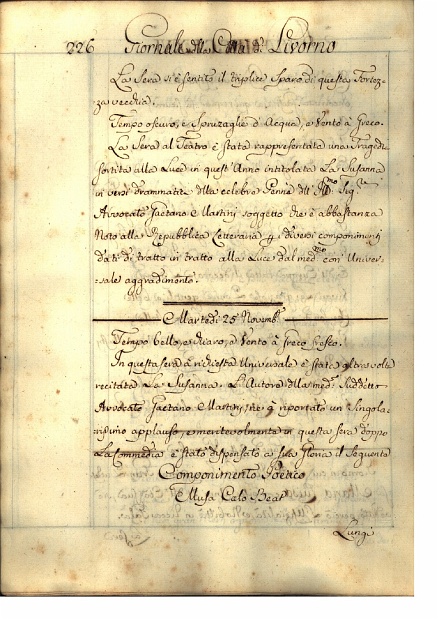 226 Giornale della Città di Livorno
La Sera si è sentito il triplice Sparo di questa Fortez-
za vecchia.
Tempo oscuro, e Spruzaglie d'Acqua, e Vento à Greco.
La Sera al Teatro è stata rappresentata una Tragedi
sortita alla Luce in quest'Anno intitolata La Susanna
in versi drammatici della celebre Penna dell' Ill.mo Sig.r
Avvocato Gaetano Martini soggetto che è abbastanza
Noto alla Republica Letteraria p. i diversi componimenti
dati di tratto in tratto alla Luce dal med.mo con Univer-
sale aggradimento.
Martedì 25 Novemb.
Tempo bello, e chiaro, e Vento à Greco fresco.
In questa sera à richiesta Universale è stata altra volta
recitata La Susanna. L'Autore della med. Suddetto
Avvocato Gaetano Martini, ne à riportato un Singola-
rissimo applauso, e meritevolmente in questa sera doppo
La Commedia è stato dispensato a sua gloria il Seguente
Componimento Poetico
Musa Celo Beat
Lungi